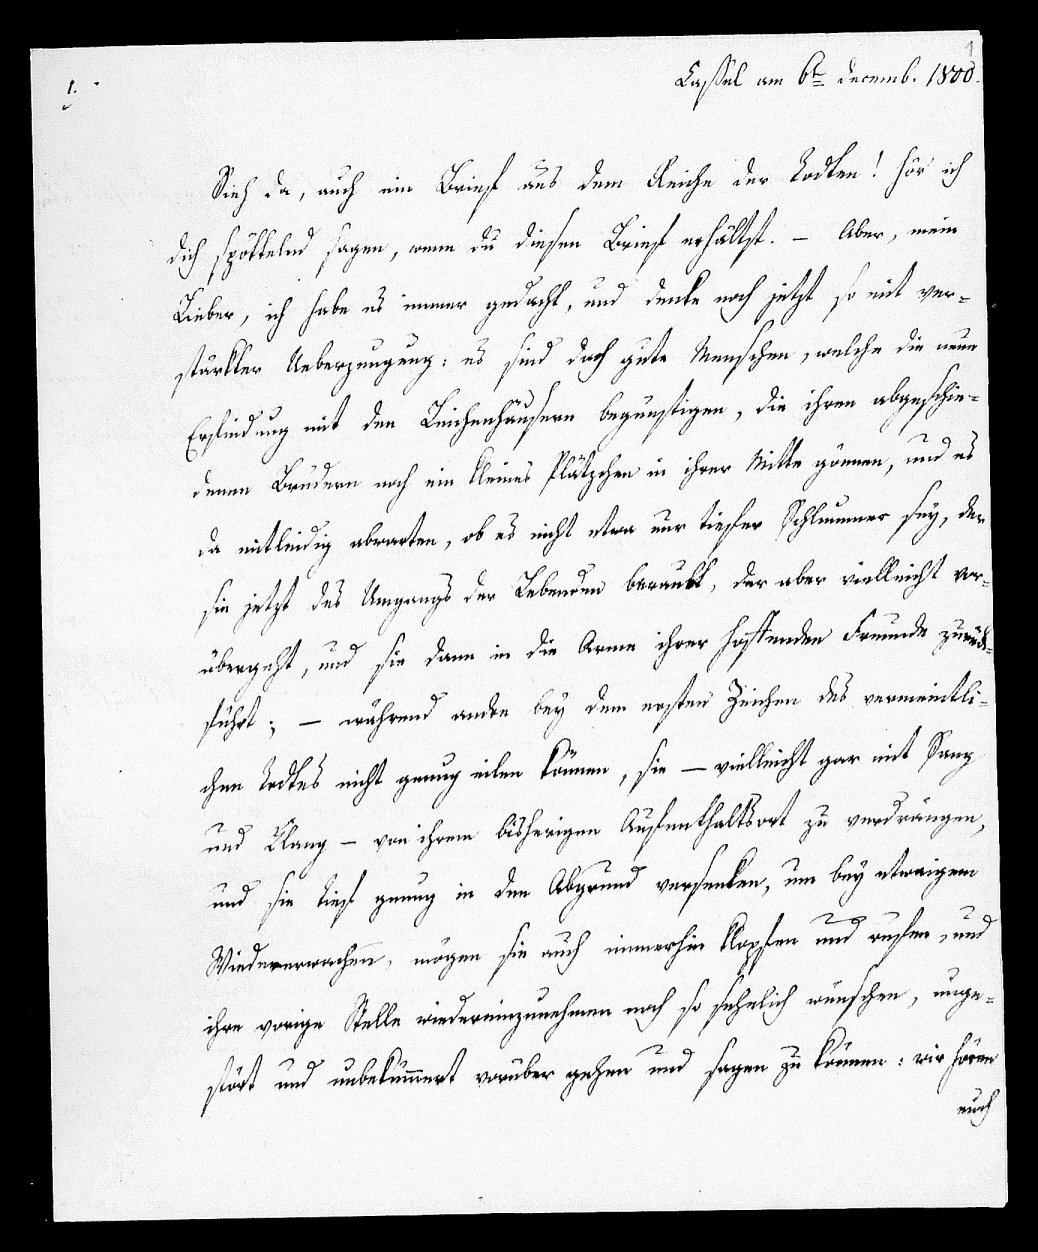 1.
1
Cassel am 6ten decemb. 1800.
Sieh da, auch ein Brief aus dem Reiche der Todten! hör' ich
dich spöttelnd sagen, wenn du diesen Brief erhältst. — Aber, mein
Lieber, ich habe es immer gedacht, und denke noch jetzt so mit ver-
stärkter Ueberzeugung: es sind doch gute Menschen, welche die neue
Erfindung mit den Leichenhäusern begünstigen, die ihren abgeschie-
denen Brüdern noch ein kleines Plätzchen in ihrer Mitte gönnen, und es
da mitleidig abwarten, ob es nicht etwa nur tiefer Schlummer sey, der
sie jetzt des Umgangs der Lebenden beraubt, der aber vielleicht vor-
übergeht, und sie dann in die Arme ihrer hoffenden Freunde zurück-
führt; — während andre bey dem ersten Zeichen des vermeintli-
chen Todtes nicht genug eilen können, sie — vielleicht gar mit Sang
und Klang — von ihrem bisherigen Aufenthaltsort zu verdrängen,
und sie tief genug in den Abgrund versenken, um bey etwaigem
Wiedererwachen, mögen sie auch immerhin klopfen und rufen, und
ihre vorige Stelle wiedereinzunehmen noch so sehnlich wünschen, unge-
stört und unbekümmert vorüber gehen und sagen zu können: wir hören
euch